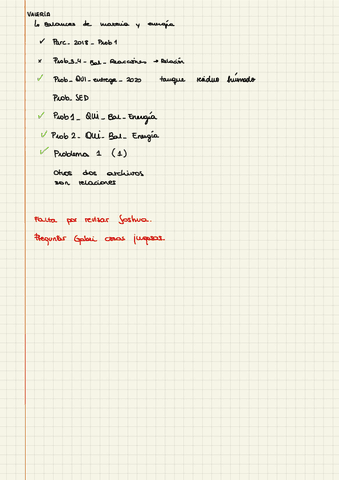 VALERÍA
↳ Balances de materia y energía
✓ Parc_ 2018_ Prob 1
x Prob 3_4_ Bal_ Reacciones → Relación
✓ Prob_ QUI_ entrega_ 2020 tanque residuo húmedo
Prob_ SED
✓ Prob 1_ QUI_ Bal_ Energía
✓ Prob 2_ QUI_ Bal_ Energía
✓ Problema 1 (1)
Otros dos archivos
son relaciones
Falta por revisar Joshua.
Preguntar Gabri cosas juegosas